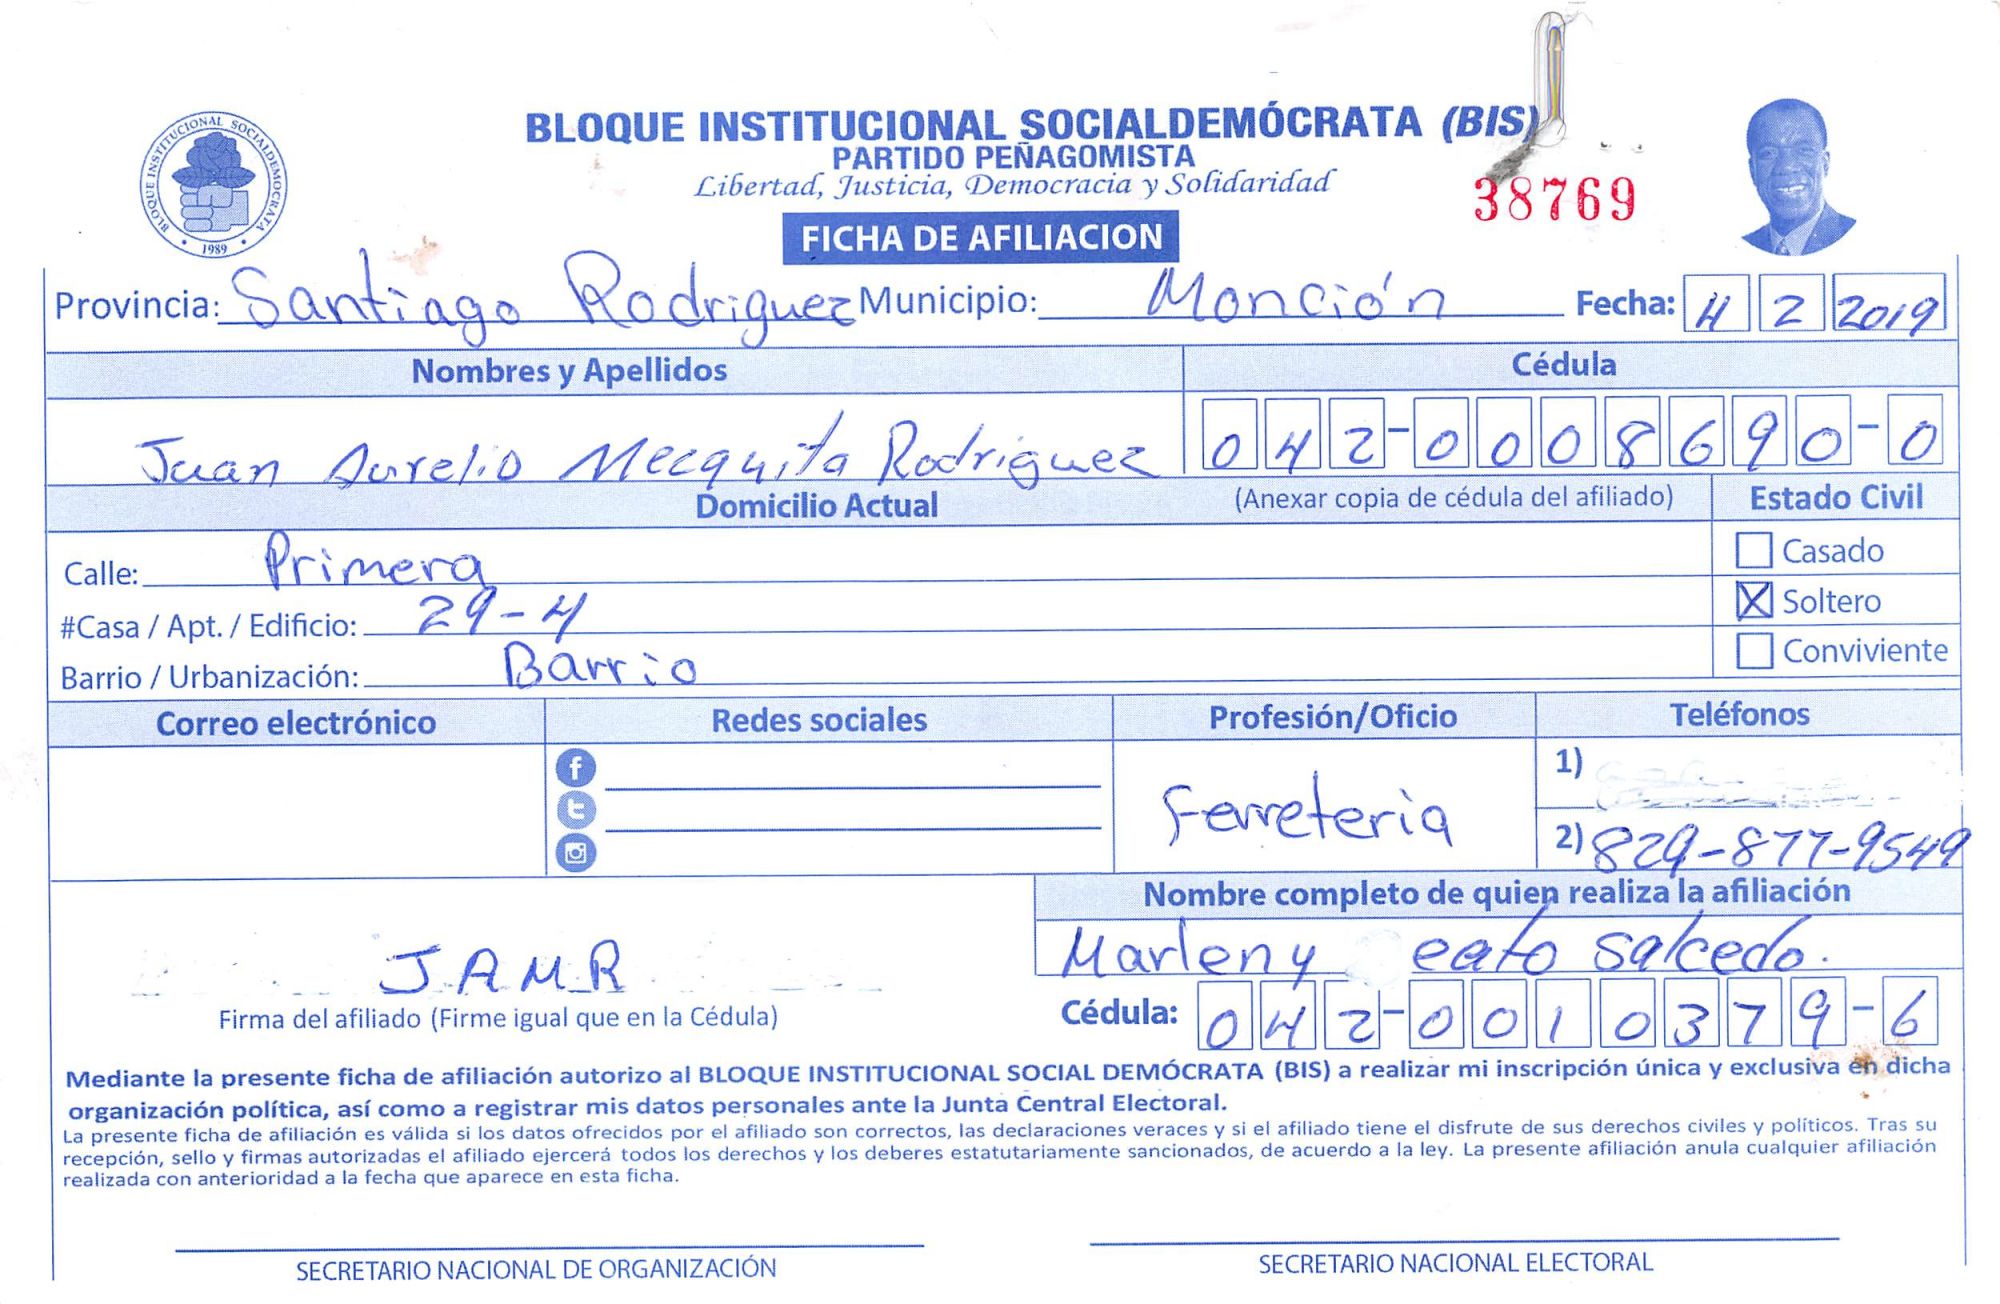 BLOQUE INSTITUCIONAL SOCIALDEMÓCRATA (BIS)
PARTIDO PEÑAGOMISTA
Libertad, Justicia, Democracia y Solidaridad
38769
BLOQUE INSTITUCIONAL SOCIALDEMOCRATA
1989
FICHA DE AFILIACION
Provincia: Santiago Rodriguez Municipio: Monción Fecha: 4 2 2019
Nombres y Apellidos Cédula
Juan Aurelio Mecquita Rodriguez 042-0008690-0
Domicilio Actual (Anexar copia de cédula del afiliado) Estado Civil
Calle: Primera Casado
#Casa / Apt. / Edificio: 29-4 Soltero
Barrio / Urbanización: Barrio Conviviente
Correo electrónico Redes sociales Profesión/Oficio Teléfonos
1)
Ferreteria
2) 829-877-9549
Nombre completo de quien realiza la afiliación
Marleny eato salcedo.
J.A.M.R
Firma del afiliado (Firme igual que en la Cédula)
Cédula: 042-0010379-6
Mediante la presente ficha de afiliación autorizo al BLOQUE INSTITUCIONAL SOCIAL DEMÓCRATA (BIS) a realizar mi inscripción única y exclusiva en dicha
organización política, así como a registrar mis datos personales ante la Junta Central Electoral.
La presente ficha de afiliación es válida si los datos ofrecidos por el afiliado son correctos, las declaraciones veraces y si el afiliado tiene el disfrute de sus derechos civiles y políticos. Tras su
recepción, sello y firmas autorizadas el afiliado ejercerá todos los derechos y los deberes estatutariamente sancionados, de acuerdo a la ley. La presente afiliación anula cualquier afiliación
realizada con anterioridad a la fecha que aparece en esta ficha.
SECRETARIO NACIONAL DE ORGANIZACIÓN SECRETARIO NACIONAL ELECTORAL